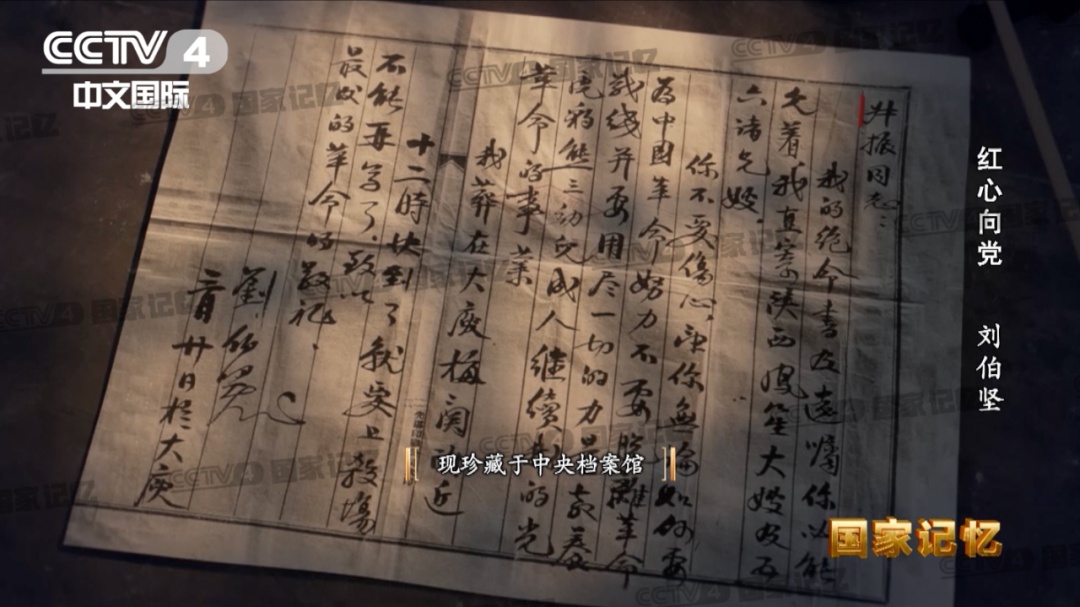 CCTV 4
中文国际
红心向党 刘伯坚
叔振同志：
我的绝命书及遗嘱你必能
见着我直寄陕西凤笙大嫂及五
六诸兄嫂。
你不要伤心，望你无论如何要
为中國革命努力不要脱離革命
战线并要用尽一切的力量教养
虎豹熊三幼兒成人继續我的光
荣革命的事業
我葬在大庾梅関附近
十二時快到了就要上殺場
不能再写了致以
最後的革命的敬礼
劉伯堅
三月廿一日於大庾
现珍藏于中央档案馆
国家记忆